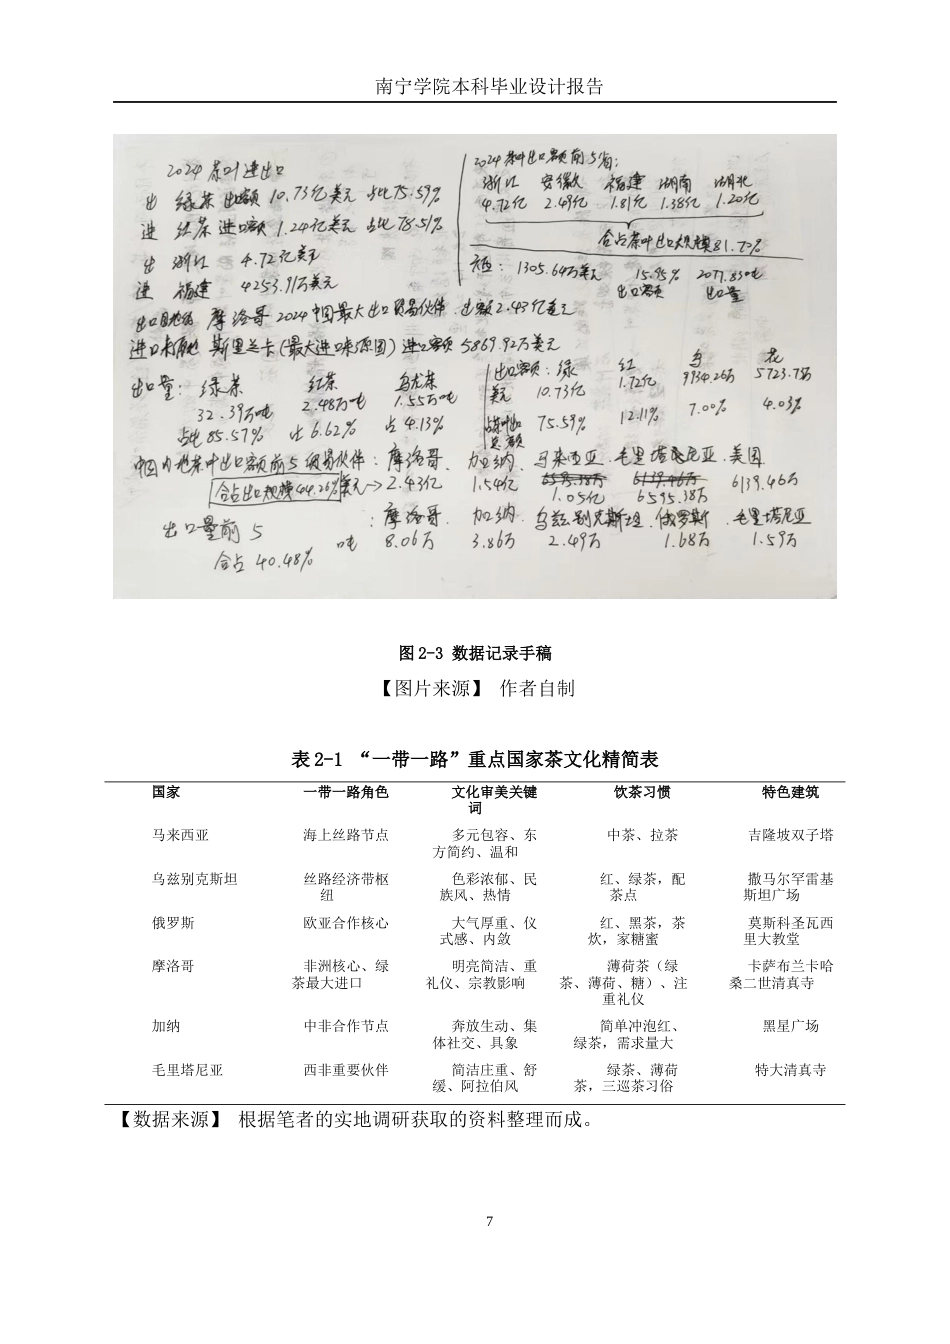 南宁学院本科毕业设计报告
2024 茶叶进出口
出 绿茶 出口额 10.73亿美元 占比75.59%
进 红茶 进口额 1.24亿美元 占比78.51%
出 浙江 4.72亿美元
进 福建 4253.91万美元
2024 茶叶出口额前5省:
浙江 安徽 福建 湖南 湖北
4.72亿 2.49亿 1.81亿 1.38亿 1.20亿
合占茶叶出口大规模81.72%
1305.64万美元 15.95% 2077.83吨
出口额 出口量
出口目的 摩洛哥 2024中国最大出口贸易伙伴 出额2.43亿美元
斯里兰卡(最大进口来源国) 进口额 5869.92万美元
出口量: 绿茶 红茶 乌龙茶
32.39万吨 2.48万吨 1.55万吨
占比85.57% 占6.62% 占4.13%
出口额: 绿 红 乌 花
美元 10.73亿 1.72亿 9934.26万 5723.7万
占茶叶出口总额 75.59% 12.11% 7.00% 4.03%
中国内地茶叶出口额前5贸易伙伴: 摩洛哥、加纳、马来西亚、毛里塔尼亚、美国
合占出口规模44.26% 美元→2.43亿 1.54亿 1.05亿 6595.38万 6139.46万
出口量前5 : 摩洛哥、加纳、乌兹别克斯坦、俄罗斯、毛里塔尼亚
吨 8.06万 3.86万 2.49万 1.68万 1.59万
合占40.48%
图 2-3 数据记录手稿
【图片来源】 作者自制
表 2-1 “一带一路”重点国家茶文化精简表
国家 一带一路角色 文化审美关键 饮茶习惯 特色建筑
词
马来西亚 海上丝路节点 多元包容、东 中茶、拉茶 吉隆坡双子塔
方简约、温和
乌兹别克斯坦 丝路经济带枢 色彩浓郁、民 红、绿茶，配 撒马尔罕雷基
纽 族风、热情 茶点 斯坦广场
俄罗斯 欧亚合作核心 大气厚重、仪 红、黑茶，茶 莫斯科圣瓦西
式感、内敛 炊，家糖蜜 里大教堂
摩洛哥 非洲核心、绿 明亮简洁、重 薄荷茶（绿 卡萨布兰卡哈
茶最大进口 礼仪、宗教影响 茶、薄荷、糖）、注 桑二世清真寺
重礼仪
加纳 中非合作节点 奔放生动、集 简单冲泡红、 黑星广场
体社交、具象 绿茶，需求量大
毛里塔尼亚 西非重要伙伴 简洁庄重、舒 绿茶、薄荷 特大清真寺
缓、阿拉伯风 茶，三巡茶习俗
【数据来源】 根据笔者的实地调研获取的资料整理而成。
7